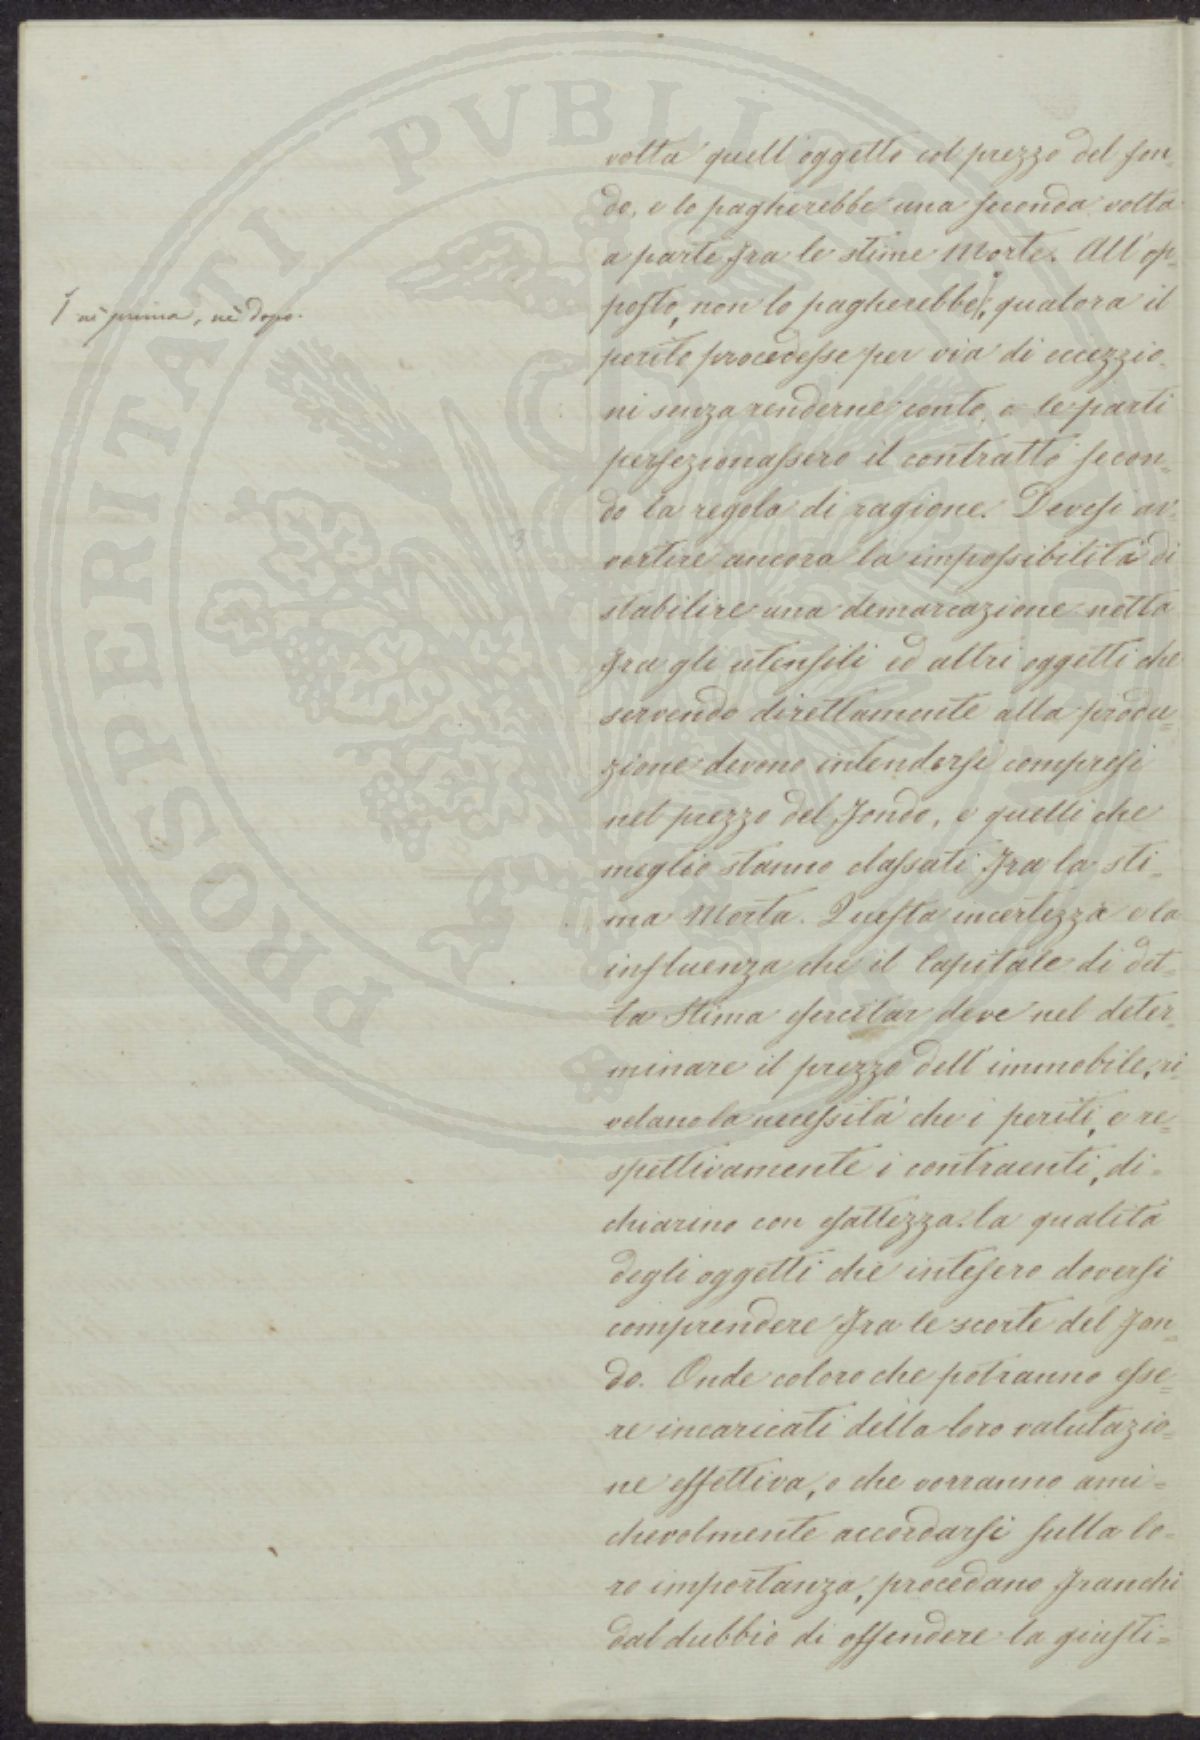 volta quell'oggetto col prezzo del fon=
do, e lo pagherebbe una seconda volta
a parte fra le stime Morte. All'op=
posto, non lo pagherebbe, qualora il
⌈ nè prima, nè dopo.
perito procedesse per via di eccezzio=
ni senza renderne conto, e le parti
perfezionassero il contratto secon=
do la regola di ragione. Devesi av=
vertire ancora la impossibilità di
stabilire una demarcazione netta
fra gli utensili ed altri oggetti che
servendo direttamente alla produ=
zione devono intendersi compresi
nel prezzo del fondo, e quelli che
meglio stanno classati fra la sti=
ma Morta. Questa incertezza e la
influenza che il Capitale di det=
ta Stima esercitar deve nel deter=
minare il prezzo dell'immobile, ri=
velano la necessità che i periti, e re=
spettivamente i contraenti, di=
chiarino con esattezza la qualità
degli oggetti che intesero doversi
comprendere fra le scorte del fon=
do. Onde coloro che potranno esse=
re incaricati della loro valutazio=
ne effettiva, o che vorranno ami=
chevolmente accordarsi sulla lo=
ro importanza, procedano franchi
dal dubbio di offendere la giusti=
PROSPERITATI PVBLICAE